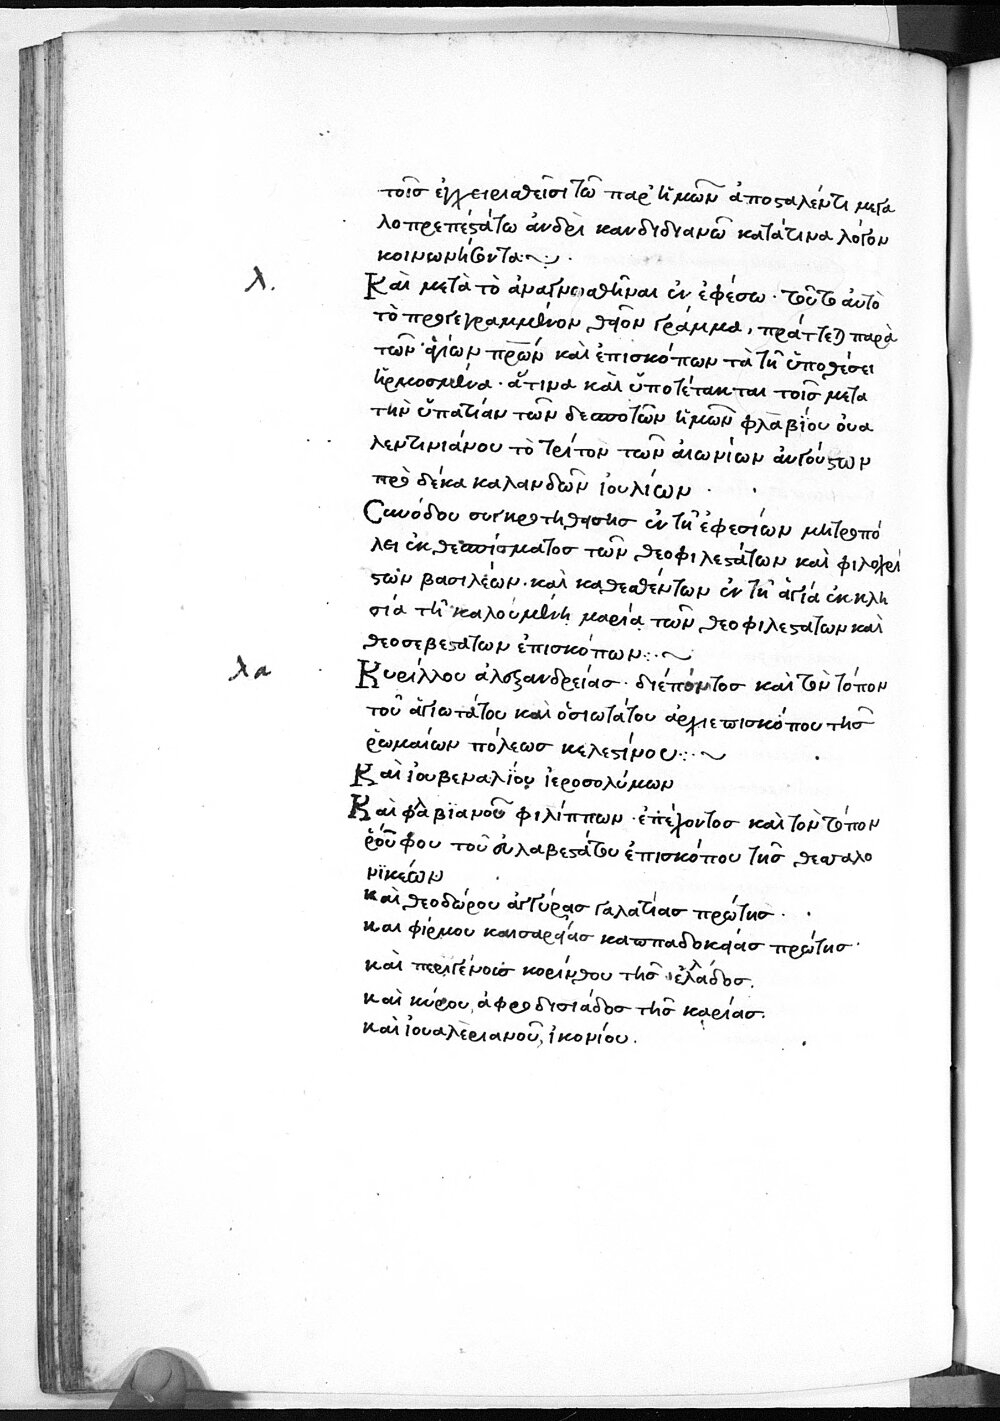 τοῖς ἐγχειρισθεῖσι τῶ παρ' ἡμῶν ἀποσταλέντι μεγα
λοπρεπεστάτω ἀνδρὶ κανδιδιανῶ κατάτινα λόγον
κοινωνήσοντα
λ. Καὶ μετὰ τὸ ἀναγνωσθῆναι ἐν ἐφέσω· τοῦτο αὐτὸ
τὸ προγεγραμμένον θεῖον γράμμα, πράττεται παρὰ
τῶν ἁγίων πρων καὶ ἐπισκόπων τὰ τῆ ὑποθέσει
ἡρμοσμένα· ἅτινα καὶ ὑποτέτακται τοῖς μετα
τὴν ὑπατίαν τῶν δεσποτῶν ἡμῶν φλαβίου οὐα
λεντινιάνου τὸ τρίτον τῶν αἰωνίων ἀυγούστων
πρὸ δέκα καλανδῶν ἰουλίων
Συνόδου συγκροτηθείσης ἐν τῆ ἐφεσίων μητροπό
λει ἐκ θεσπίσματος τῶν θεοφιλεστάτων καὶ φιλοχρί
στων βασιλέων· καὶ καθεσθέντων ἐν τῆ ἁγία ἐκκλη
σία τῆ καλουμένη μαρία τῶν θεοφιλεστάτων καὶ
θεοσεβεστάτων ἐπισκόπων
λα Κυρίλλου ἀλεξανδρείας· διέποντος καὶ τὸν τόπον
τοῦ ἁγιωτάτου καὶ ὁσιωτάτου ἀρχιεπισκόπου τῆς
ῥωμαίων πόλεως κελεστίνου
Καὶ ἰουβεναλίου ἱεροσολύμων
Καὶ φλαβιανοῦ φιλίππων· ἐπέχοντος καὶ τὸν τόπον
ῥούφου τοῦ εὐλαβεστάτου ἐπισκόπου τῆς θεσσαλο
νικέων
καὶ θεοδώρου ἀγκύρας γαλατίας πρώτης·
και φίρμου καισαρείας καππαδοκείας πρώτης·
καὶ περιγένους κορίνθου τῆς ἑλλάδος.
καὶ κύρου, ἀφροδισιάδος τῆς καρίας.
καὶ ἰουαλεριανοῦ, ἰκονίου.